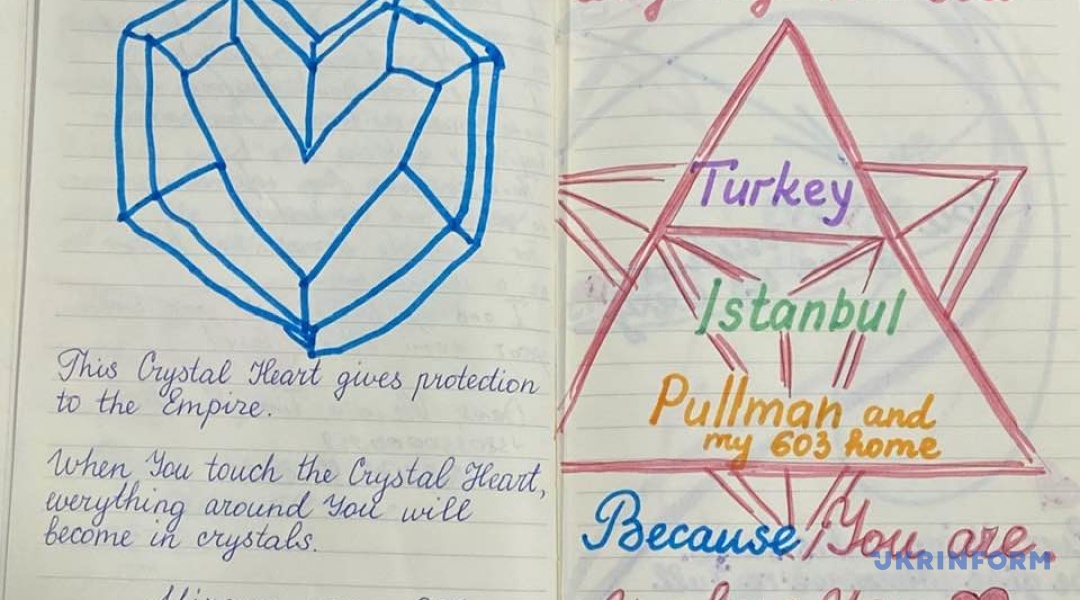 This Crystal Heart gives protection
to the Empire.
When You touch the Crystal Heart,
everything around You will
become in crystals.
Turkey
Istanbul
Pullman and
my 603 home
Because You are
UKRINFORM